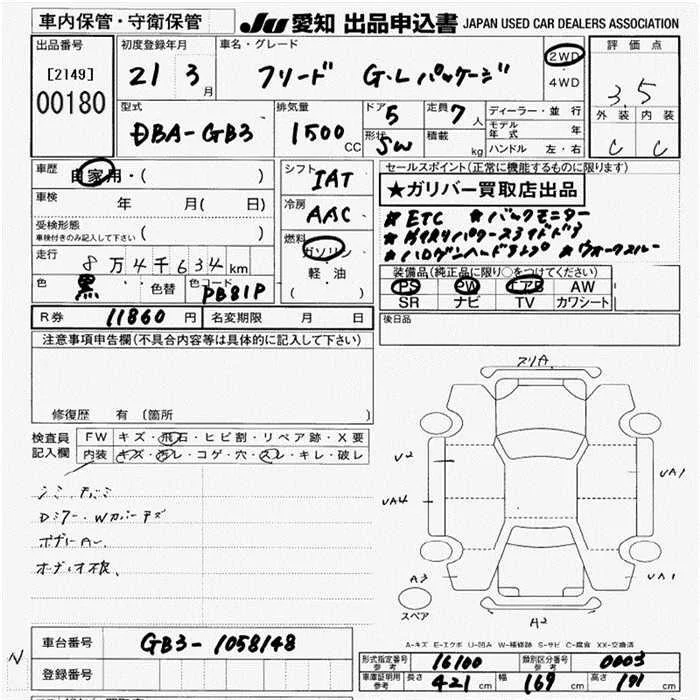 車内保管・守衛保管
JU 愛知 出品申込書 JAPAN USED CAR DEALERS ASSOCIATION
出品番号
[2149]
00180
初度登録年月
21 3月
車名・グレード
フリード G・Lパッケージ
2WD
4WD
評価点
3.5
外装 内装
C C
型式
DBA-GB3
排気量
1500 CC
ドア 5
形状 SW
定員 7人
積載 kg
ディーラー・並行
モデル年式 年
ハンドル 左・右
車歴 自家用・( )
車検 年 月( 日)
受検形態
車検付きのみ記入して下さい ( )
走行 8万4千634km
色 黒 色替 色コード PB81P
シフト IAT
冷房 AAC
燃料 ガソリン
軽・油
( )
セールスポイント(正常に機能するものに限ります)
★ガリバー買取店出品
★ETC ★バックモニター
★ハロゲンヘッドランプ ★ウォークスルー
装備品(純品商に限り○をつけてください)
PS PW エアB AW
SR ナビ TV カワシート
R券 11860円 名変期限 月 日
後日品
注意事項申告欄(不具合内容等は具体的に記入して下さい)
修復歴 有 (箇所 )
検査員記入欄
FW キズ・飛石・ヒビ割・リペア跡・X要
内装 キズ・汚レ・コゲ・穴・スレ・キレ・破レ
オーディオ不良、
スリA
U2
UA4
UA1
UA1
A3
A2
スペア
A-キズ E-エクボ U-凹み W-補修跡 S-サビ C-腐食 XX-交換済
車台番号 GB3-1058148
登録番号
形式指定番号 参考 16100 類別区分番号 参考 0003
車庫証明用 参考 長さ 421cm 幅 169cm 高さ 171cm